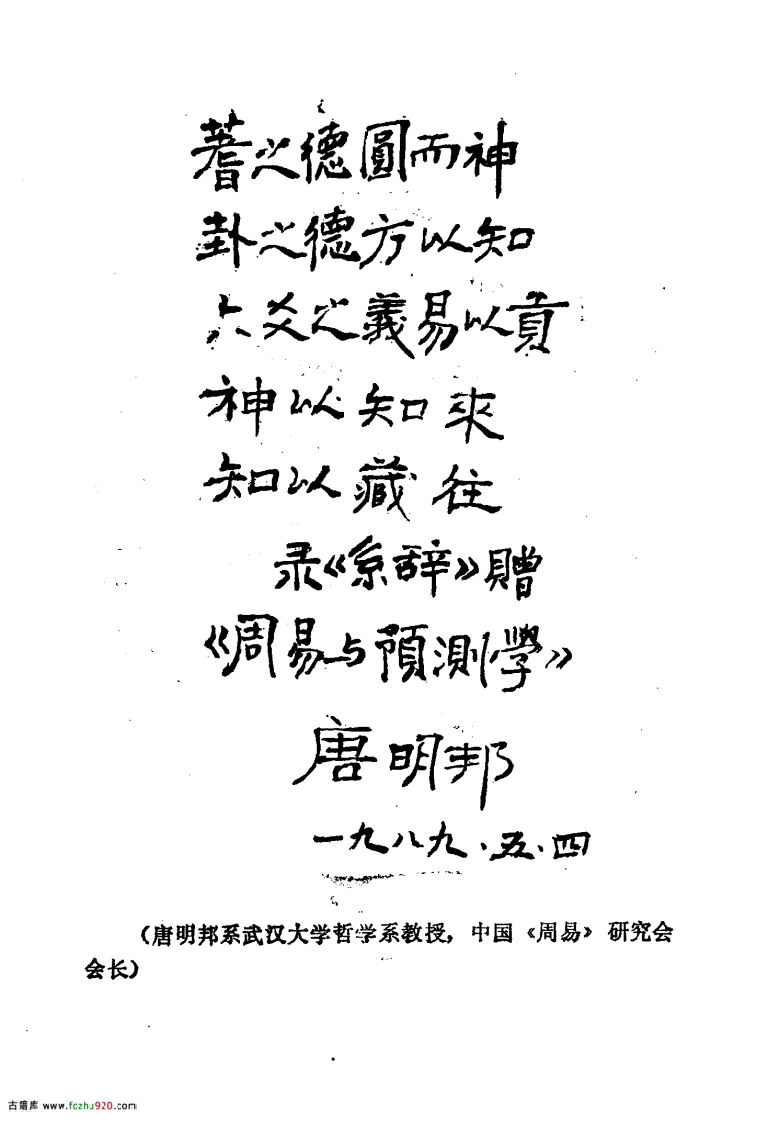 蓍之德圓而神
卦之德方以知
六爻之義易以貢
神以知來
知以藏往
录《系辞》贈
《周易与預測學》
唐明邦
一九八九·五·四
（唐明邦系武汉大学哲学系教授，中国《周易》研究会
会长）
古籍库 www.fczhu920.com